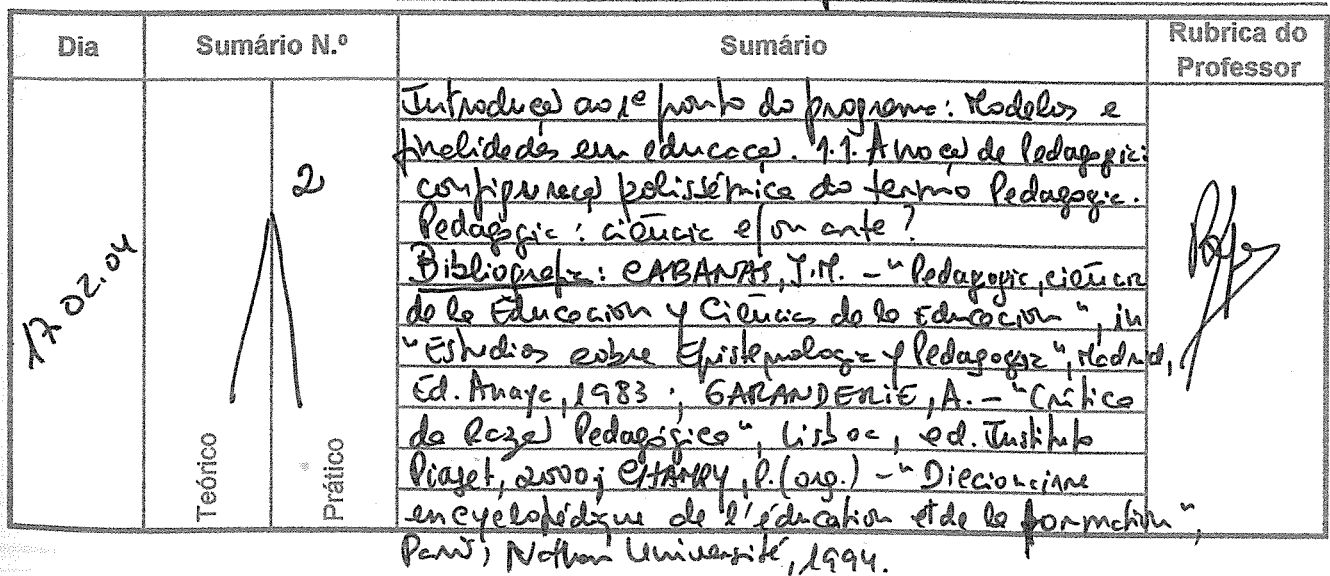 Dia Sumário N.º Sumário Rubrica do Professor
17.02.04
2
Teórico
Prático
Introdução ao 1º ponto do programa: Modelos e
finalidades em educação. 1.1. A noção de Pedagogia:
configuração polissémica do termo Pedagogia.
Pedagogia: ciência e/ou arte?
Bibliografia: CABANAS, J.M. - "Pedagogia, ciência
de la Educacion y Ciências de la Educacion", in
"Estudios sobre Epistemologia y Pedagogia", Madrid,
Ed. Anaya, 1983; GARANDERIE, A. - "Crítica
da Razão Pedagógica", Lisboa, ed. Instituto
Piaget, 2000; CHAMPY, P. (org.) - "Diccionaire
encyclopédique de l'éducation et de la formation",
Paris, Nathan Université, 1994.